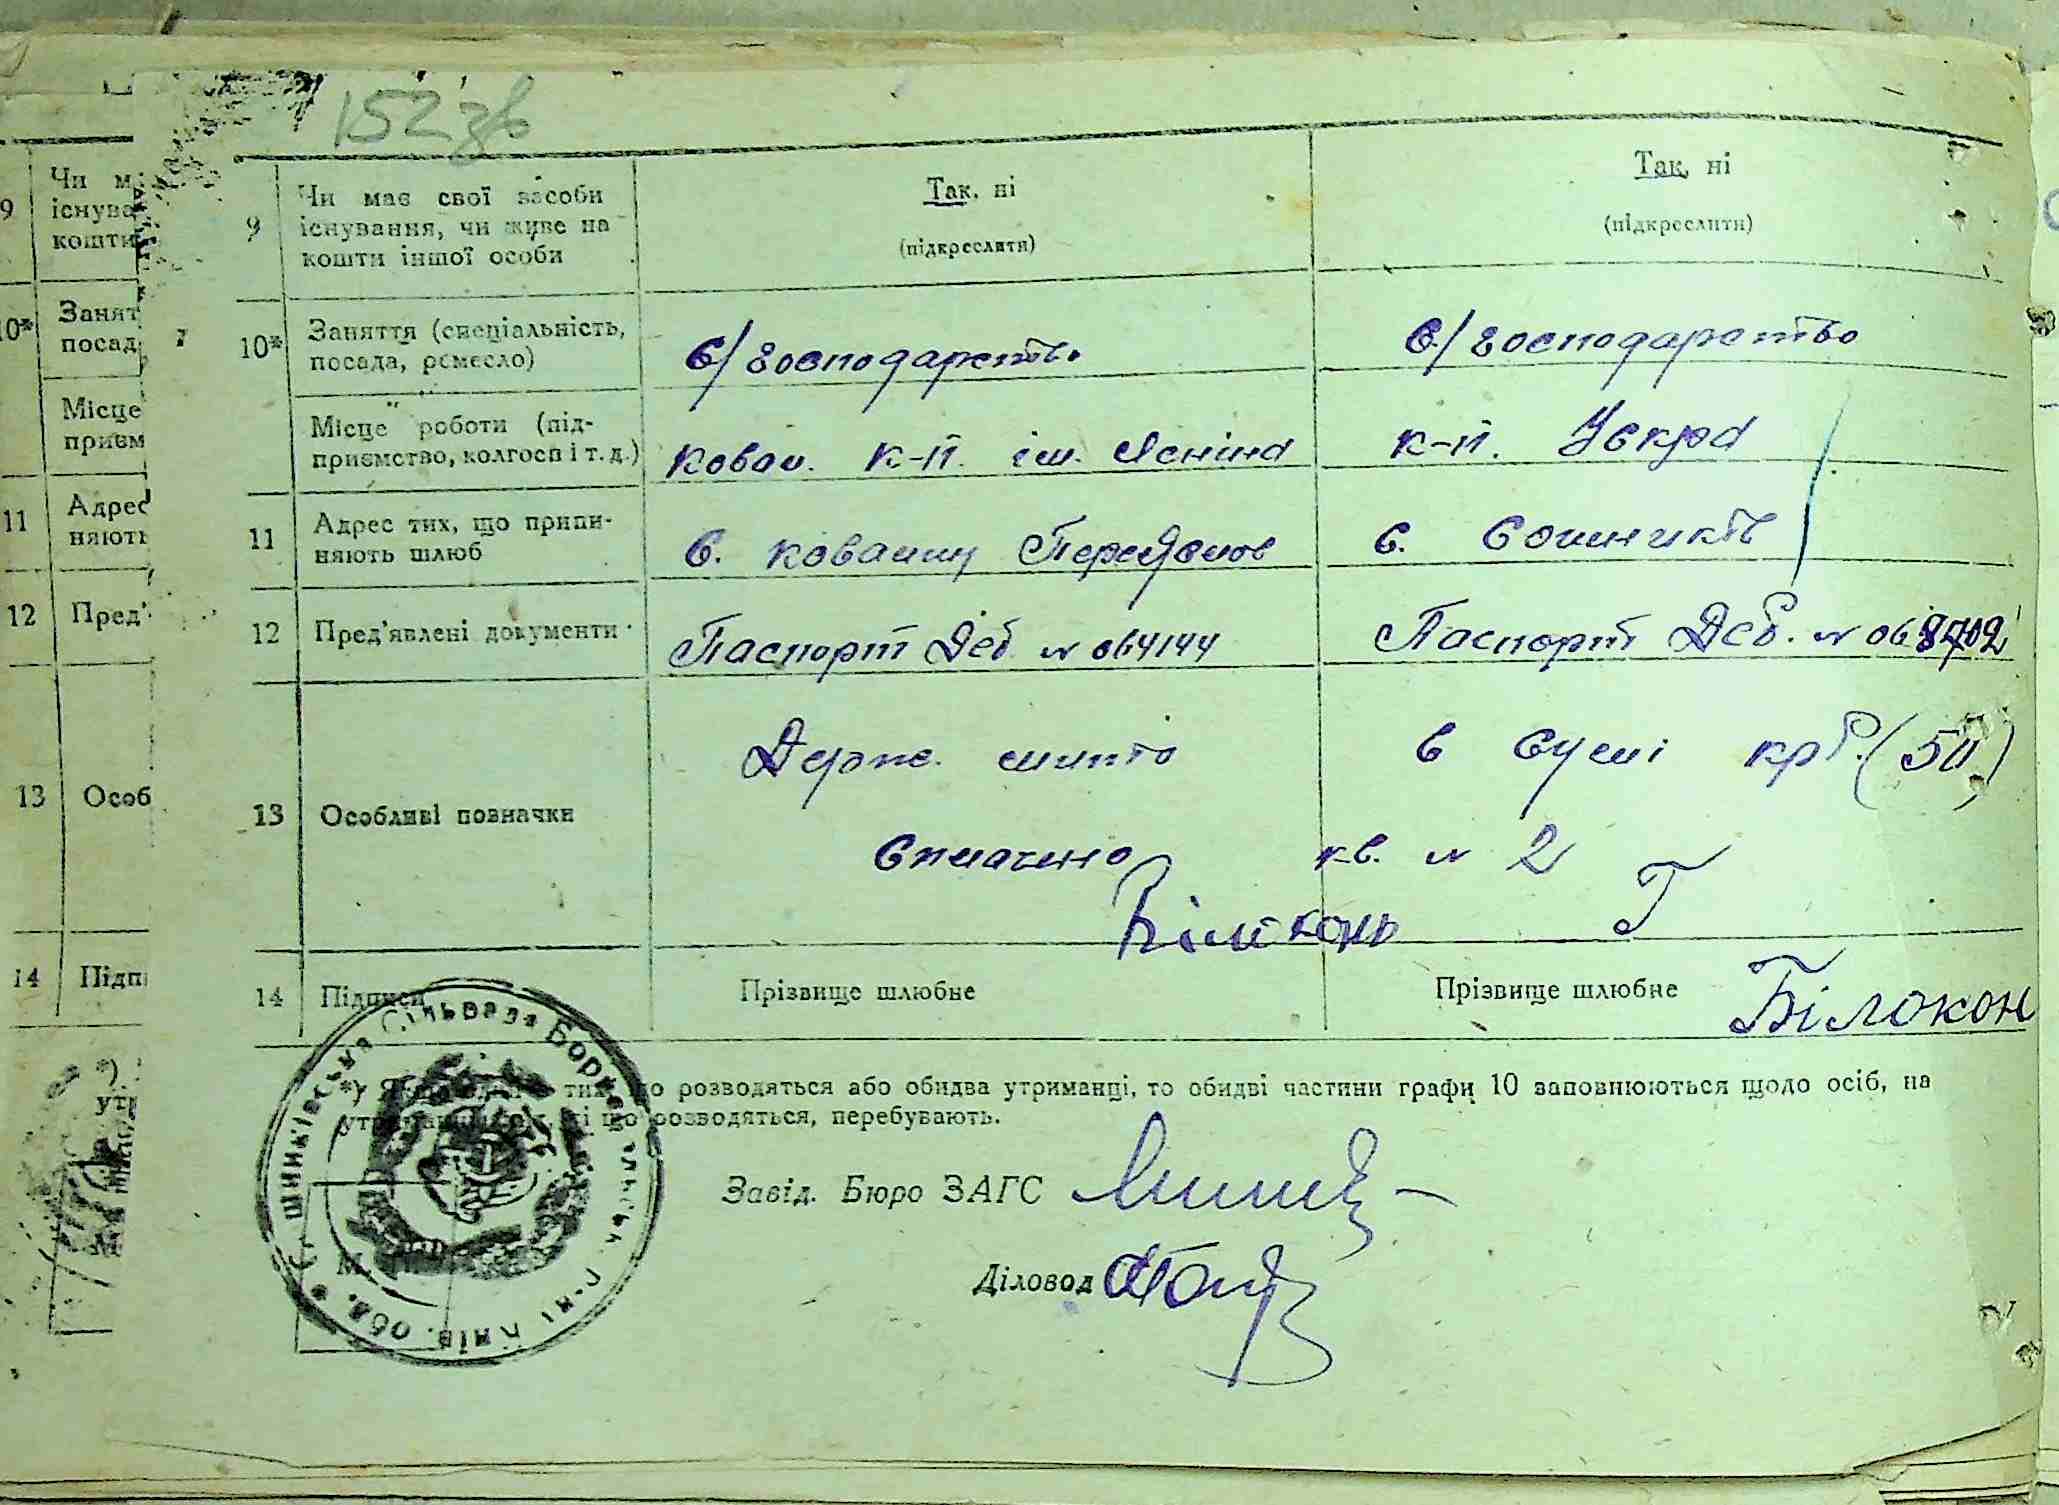 152 зв
9
Чи має свої засоби
існування, чи живе на
кошти іншої особи
Так, ні
(підкреслити)
Так, ні
(підкреслити)
10*
Заняття (спеціальність,
посада, ремесло)
С/господарство
С/господарство
Місце роботи (під-
приємство, колгосп і т. д.)
Ковал. к-п. ім. Леніна
к-п. Іскра
11
Адрес тих, що припи-
няють шлюб
с. Ковалин
с. Сошників
12
Пред'явлені документи
Паспорт № 064144
Паспорт №
13
Особливі позначки
Держ. мито
в сумі крб. (50)
сплачено
кв. № 2
Білоконь Г
14
Підписи
Прізвище шлюбне
Прізвище шлюбне
Білокон
тих, що розводяться або обидва утриманці, то обидві частини графи 10 заповнюються щодо осіб, на
що розводяться, перебувають.
Завід. Бюро ЗАГС
Діловод
шниківська Сільрада Борис р-ну Київ. обл.
9
Чи м
існува
кошти
10*
Занят
посад
Місце
приєм
11
Адрес
няють
12
Пред'
13
Особ
14
Підп